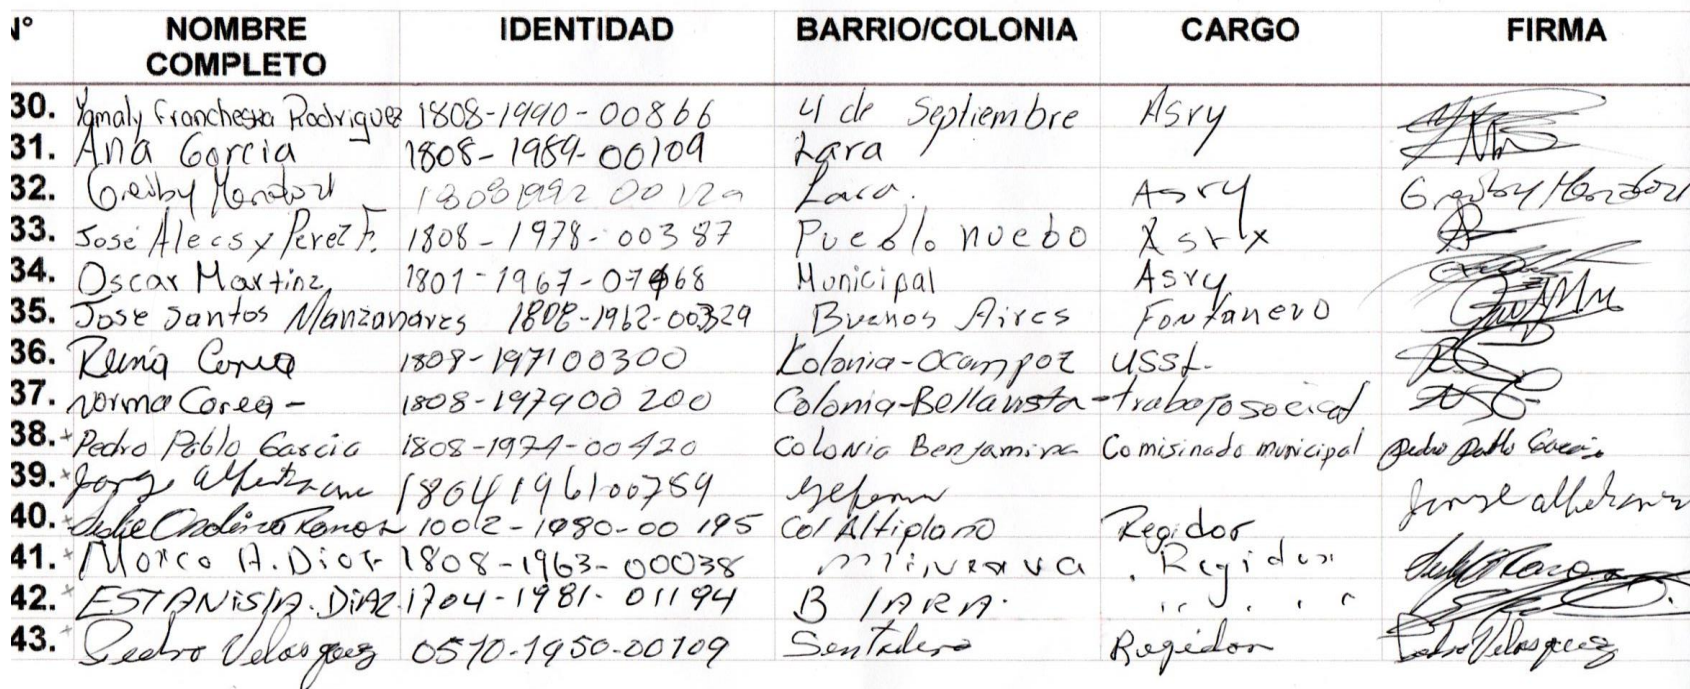 N° NOMBRE COMPLETO IDENTIDAD BARRIO/COLONIA CARGO FIRMA
30. Yamaly Francheska Rodriguez 1808-1990-00866 4 de Septiembre Asry
31. Ana Garcia 1808-1989-00109 Lara
32. Greiby 1808 1992 00129 Lara. Asry Greiby
33. José Alecsy Perez F. 1808-1978-00387 Pueblo nuebo
34. Oscar Martinz 1801-1967-07468 Municipal Asry
35. Jose Santos Manzanares 1808-1962-00329 Buenos Aires Fontanero
36. 1808-197100300 Kolonia-Ocampoz
37. Norma Corea- 1808-197900200 Colonia-Bellavista-trabajo social
38. Pedro Pablo Garcia 1808-1974-00420 Colonia Benjamina Comisinado municipal Pedro Pablo Garcia
39. Jorge 1804196100789 Jorge
40. Ramos 1002-1980-00195 Col Altiplano Regidor
41. Marco A. Dior 1808-1963-00038 Regidor
42. ESTANISIA. DIAZ. 1704-1981-01194 B lARA.
43. Pedro Velasquez 0510-1950-00109 Sentadero Regidor Pedro Velasquez